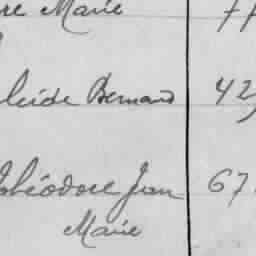 re Marie 77
leide Bernard 42
Théodore Jean 67
Marie